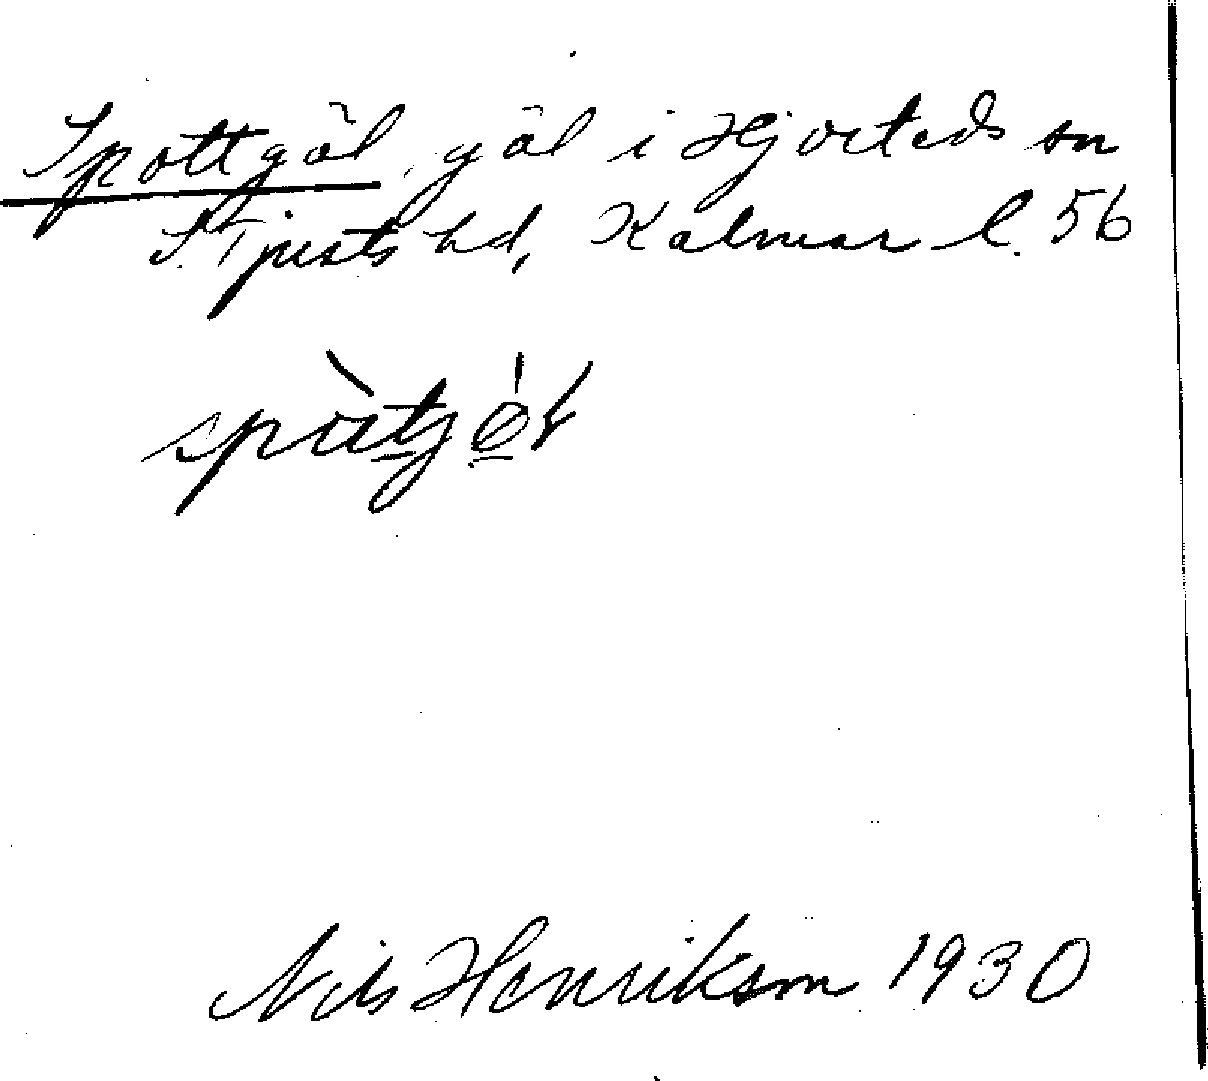 Spottgöl, göl i Hjorteds sn
S. Tjusts hd, Kalmar l. 56
Nils Henrikson 1930